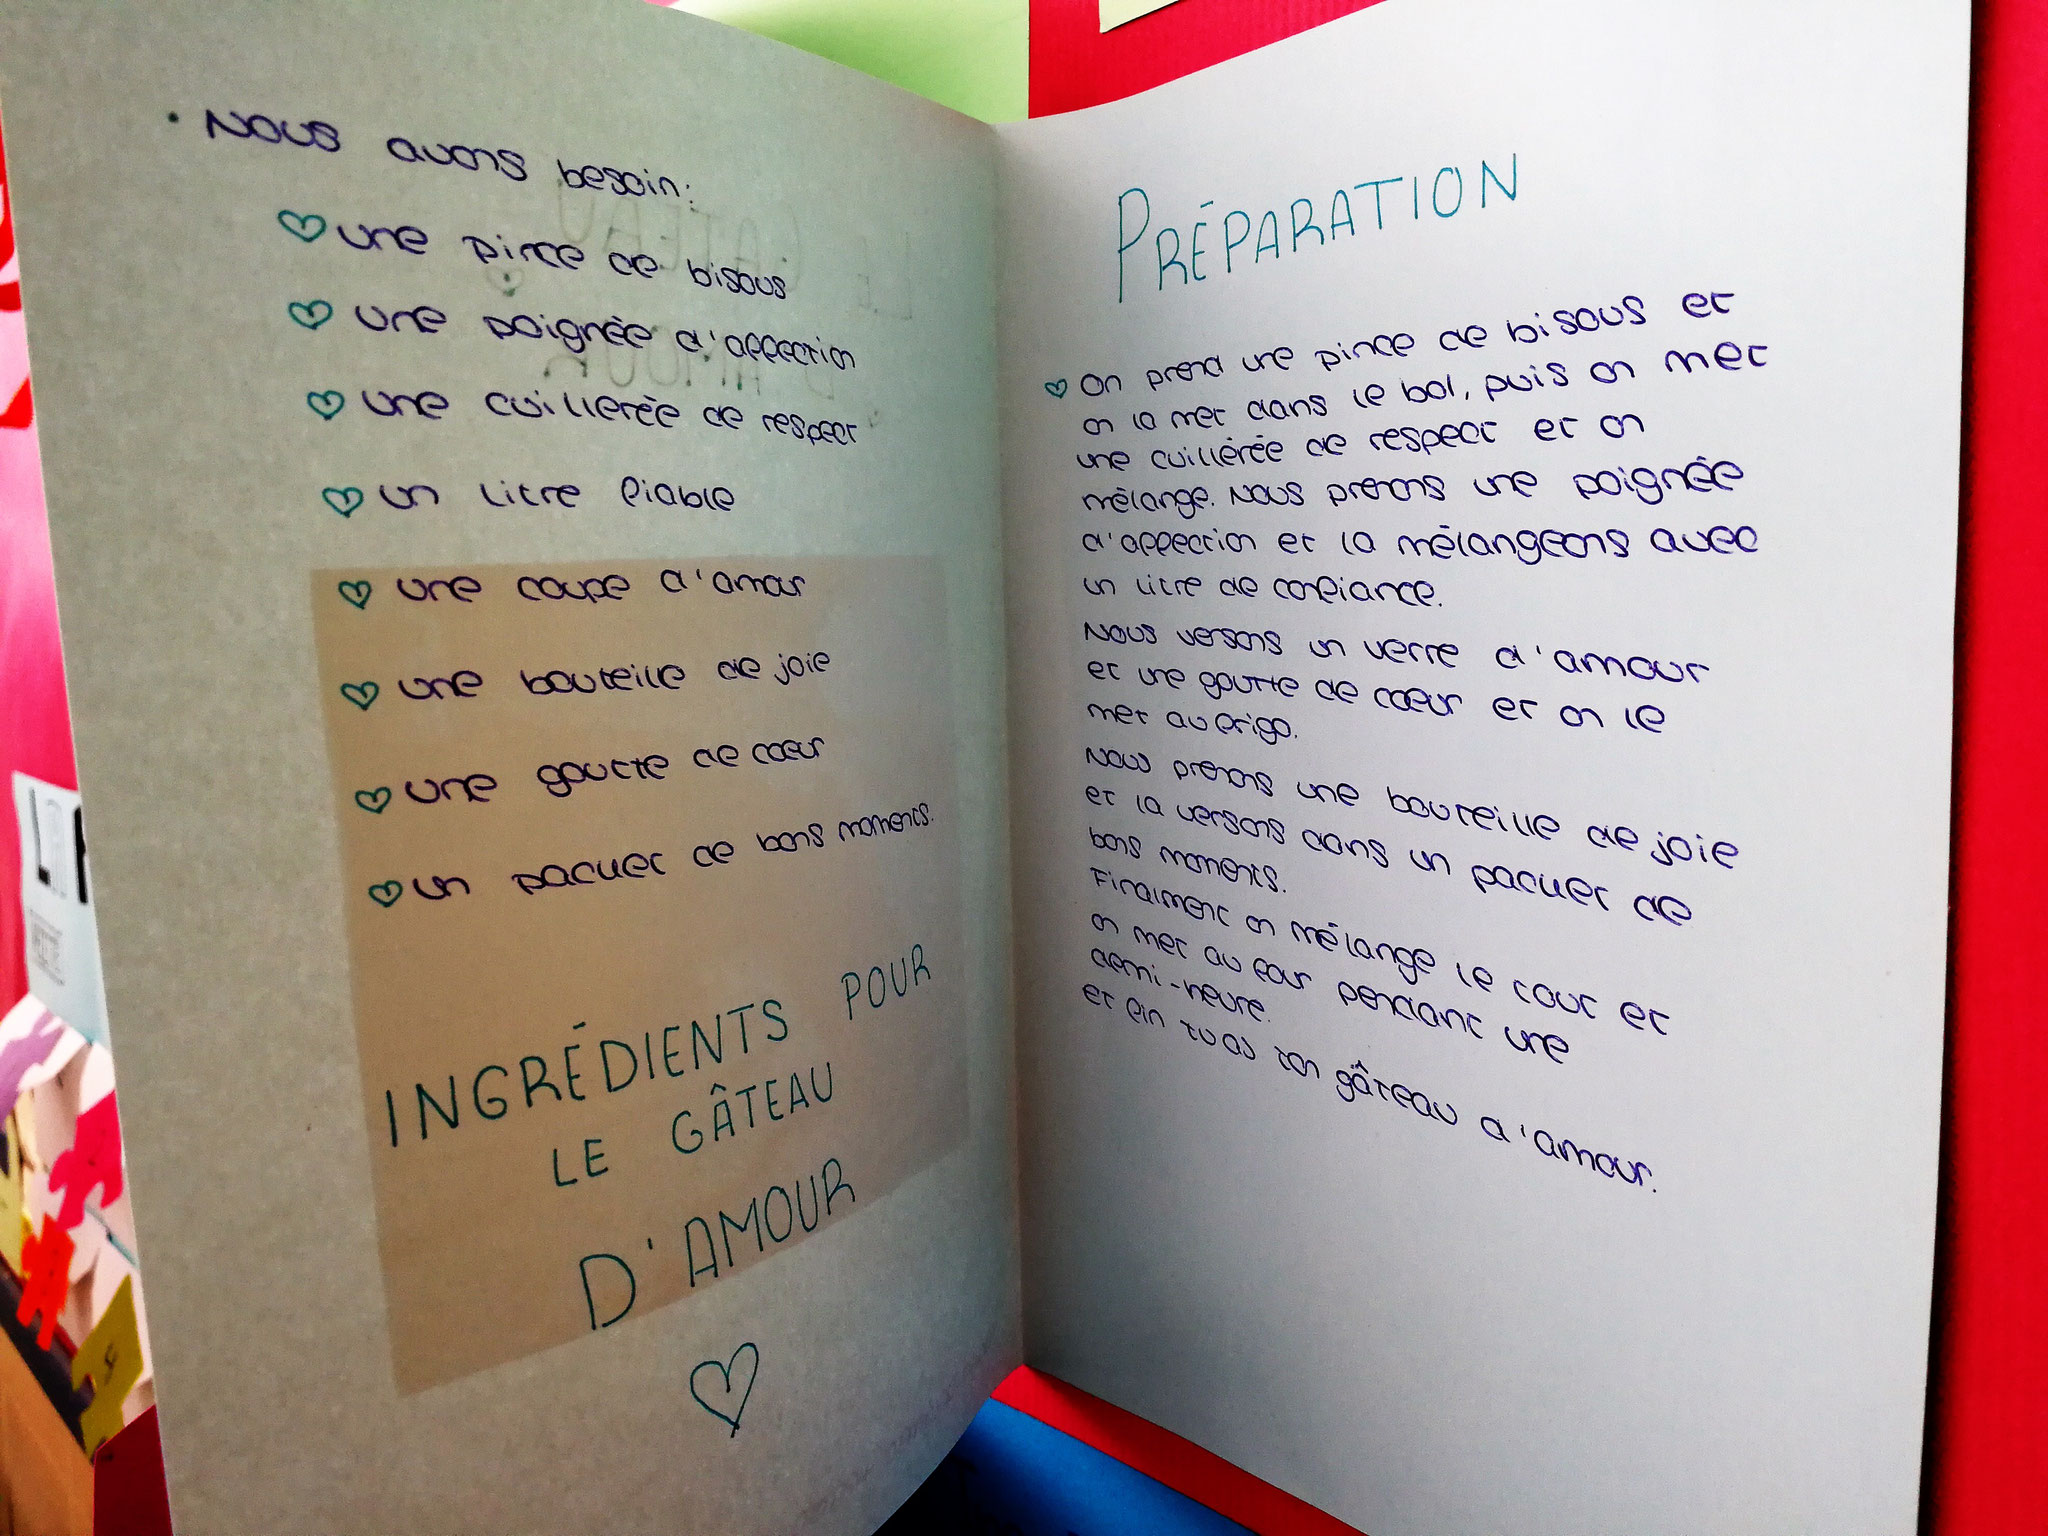 • Nous avons besoin:
♡ une pince de bisous
♡ une poignée d'affection
♡ une cuillerée de respect
♡ un litre fiable
♡ une coupe d'amour
♡ une bouteille de joie
♡ une goutte de cœur
♡ un paquet de bons moments.
INGRÉDIENTS POUR
LE GÂTEAU
D'AMOUR
PRÉPARATION
♡ On prend une pince de bisous et
on la met dans le bol, puis on met
une cuillérée de respect et on
mélange. Nous prenons une poignée
d'affection et la mélangeons avec
un litre de confiance.
Nous versons un verre d'amour
et une goutte de cœur et on le
met au frigo.
Nous prenons une bouteille de joie
et la versons dans un paquet de
bons moments.
Finalment on mélange le tout et
on met au four pendant une
demi-heure.
et fin tu as ton gâteau d'amour.